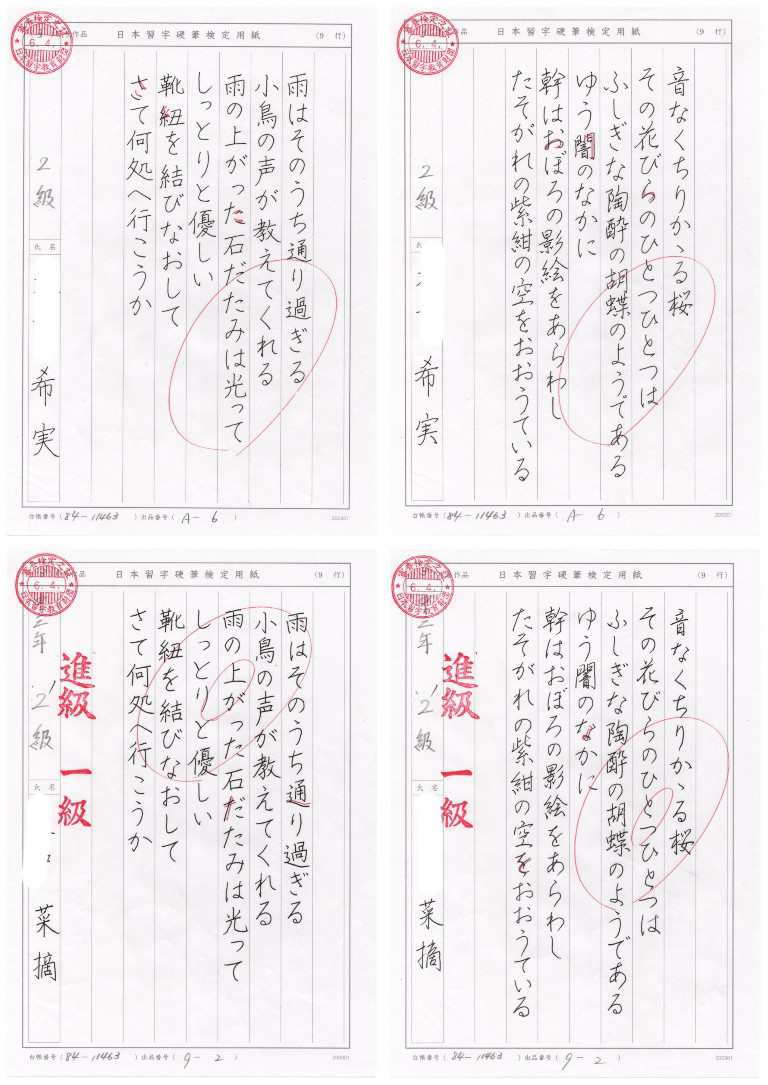 審査検定之証
6.4.
日本習字教育財団
作品
日本習字硬筆検定用紙
(9 行)
雨はそのうち通り過ぎる
小鳥の声が教えてくれる
雨の上がった石だたみは光って
しっとりと優しい
靴紐を結びなおして
さて何処へ行こうか
2級
氏名
希実
台帳番号(84-11463)出品番号(A-6)
200301
6.4.
日本習字教育財団
作品
日本習字硬筆検定用紙
(9 行)
音なくちりかゝる桜
その花びらのひとつひとつは
ふしぎな陶酔の胡蝶のようである
ゆう闇のなかに
幹はおぼろの影絵をあらわし
たそがれの紫紺の空をおおうている
2級
氏名
希実
台帳番号(84-11463)出品番号(A-6)
200301
6.4.
日本習字教育財団
作品
日本習字硬筆検定用紙
(9 行)
雨はそのうち通り過ぎる
小鳥の声が教えてくれる
雨の上がった石だたみは光って
しっとりと優しい
靴紐を結びなおして
さて何処へ行こうか
進級 一級
三年 2級
氏名
菜摘
台帳番号(84-11463)出品番号(9-2)
200301
6.4.
日本習字教育財団
作品
日本習字硬筆検定用紙
(9 行)
音なくちりかゝる桜
その花びらのひとつひとつは
ふしぎな陶酔の胡蝶のようである
ゆう闇のなかに
幹はおぼろの影絵をあらわし
たそがれの紫紺の空をおおうている
進級 一級
三年 2級
氏名
菜摘
台帳番号(84-11463)出品番号(9-2)
200301